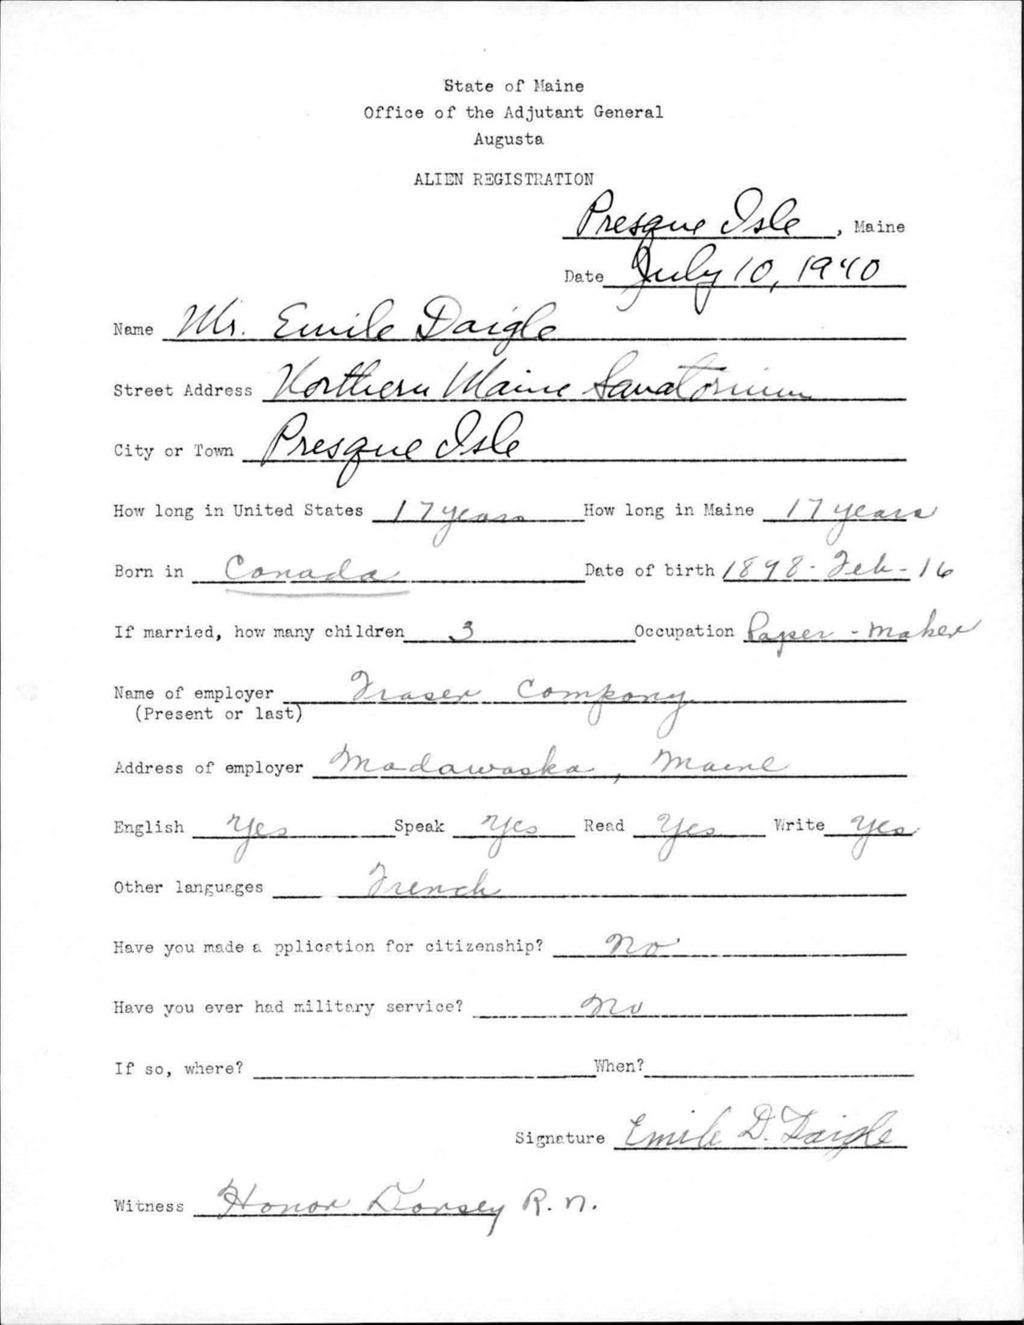 State of Maine
Office of the Adjutant General
Augusta
ALIEN REGISTRATION
Presque Isle, Maine
Date July 10, 1940
Name Mr. Emile Daigle
Street Address Northern Maine Sanatorium
City or Town Presque Isle
How long in United States 17 years How long in Maine 17 years
Born in Canada Date of birth 1898 - Feb - 16
If married, how many children 3 Occupation Paper - maker
Name of employer Fraser Company
(Present or last)
Address of employer Madawaska, Maine
English Yes Speak Yes Read Yes Write Yes
Other languages French
Have you made a pplication for citizenship? No
Have you ever had military service? No
If so, where? When?
Signature Emile D. Daigle
Witness Honor Dorsey R.N.